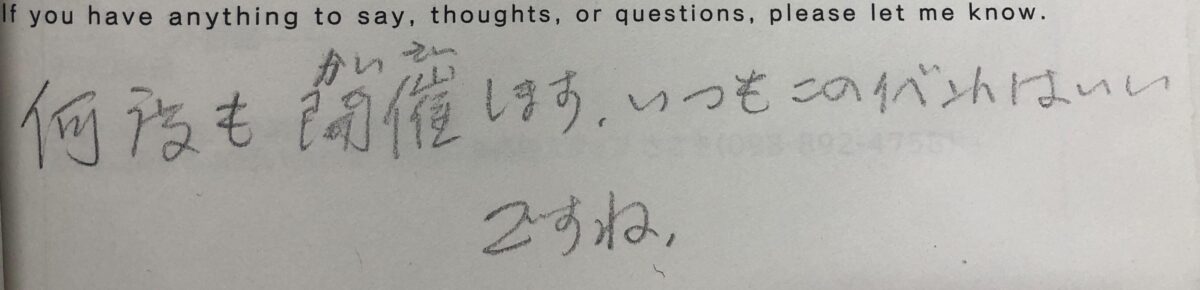 If you have anything to say, thoughts, or questions, please let me know.
かいさい
何段も開催します.いつもこのイベントはいい
ですね,